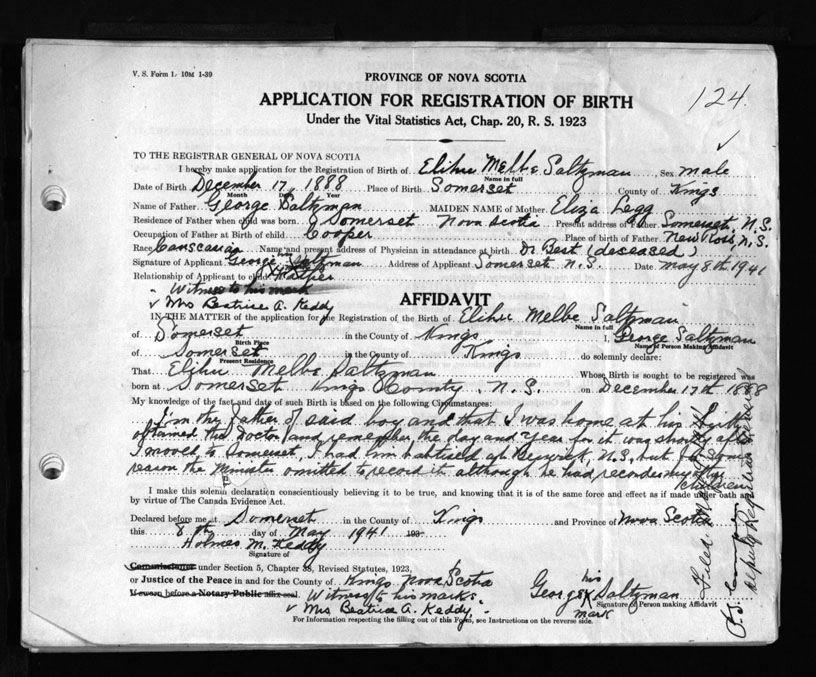 V. S. Form 1. 10M 1-39
PROVINCE OF NOVA SCOTIA
124.
APPLICATION FOR REGISTRATION OF BIRTH
Under the Vital Statistics Act, Chap. 20, R. S. 1923
TO THE REGISTRAR GENERAL OF NOVA SCOTIA
I hereby make application for the Registration of Birth of Elihu Melbe Saltzman, Sex male
Name in full
Date of Birth December 17, 1888 Place of Birth Somerset County of Kings
Month Day Year
Name of Father George Saltzman MAIDEN NAME of Mother Eliza Legg
Residence of Father when child was born Somerset Nova Scotia Present address of Father Somerset, N.S.
Occupation of Father at Birth of child Cooper Place of birth of Father New Ross, N.S.
Race Name and present address of Physician in attendance at birth Dr Best (deceased)
Signature of Applicant George his X mark Saltzman Address of Applicant Somerset N.S. Date May 8th 1941
Relationship of Applicant to child Father
Witness to his mark
Mrs Beatrice A. Keddy
AFFIDAVIT
IN THE MATTER of the application for the Registration of the Birth of Elihu Melbe Saltzman
Name in full
of Somerset in the County of Kings I, George Saltzman
Birth Place Name of Person Making Affidavit
of Somerset in the County of Kings do solemnly declare:
Present Residence
That Elihu Melbe Saltzman Whose Birth is sought to be registered was
born at Somerset Kings County, N.S. on December 17th 1888
My knowledge of the fact and date of such Birth is based on the following Circumstances:
I'm the father of said boy and that I was home at his birth
obtained the Doctor and remember the day and year for it was shortly after
I moved to Somerset, I had him baptised at Berwick, N.S. but for some
reason the Minister omitted to record it although he had recorded my other
children
I make this solemn declaration conscientiously believing it to be true, and knowing that it is of the same force and effect as if made under oath and
by virtue of The Canada Evidence Act.
Declared before me at Somerset in the County of Kings and Province of Nova Scotia
this 8th day of May 1941 193
Holmes M. Keddy
Signature of
Commissioner under Section 5, Chapter 38, Revised Statutes, 1923,
or Justice of the Peace in and for the County of Kings Nova Scotia
If sworn before a Notary Public affix seal. Witness to his marks.
George his X mark Saltzman
Signature of Person making Affidavit
Mrs Beatrice A. Keddy.
For Information respecting the filling out of this Form, see Instructions on the reverse side.
Deputy Registrar General